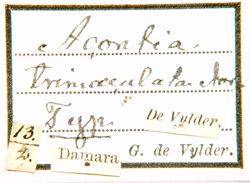 Acontia
trimaculata Aur.
Typ.
De Vylder.
13.
2.
Damara
G. de Vylder.